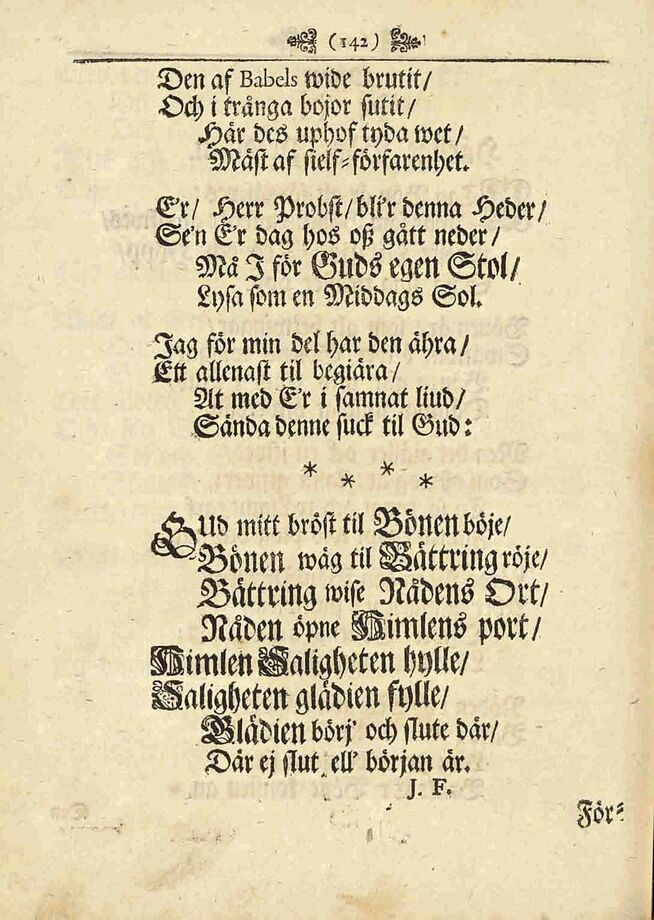 (142)
Den af Babels wide brutit/
Och i trånga bojor sutit/
Här des uphof tyda wet/
Mäst af sielf-förfarenhet.
E'r/ Herr Probst/ bli'r denna Heder/
Se'n E'r dag hos oß gått neder/
Må I för Guds egen Stol/
Lysa som en Middags Sol.
Jag för min del har den ähra/
Ett allenast til begiära/
At med E'r i samnat liud/
Sända denne suck til Gud:
* * * *
GUd mitt bröst til Bönen böje/
Bönen wäg til Bättring röje/
Bättring wise Nådens Ort/
Nåden öpne Himlens port/
Himlen Saligheten hylle/
Saligheten glädien fylle/
Glädien börj' och slute där/
Där ej slut ell' början är.
J. F.
För-